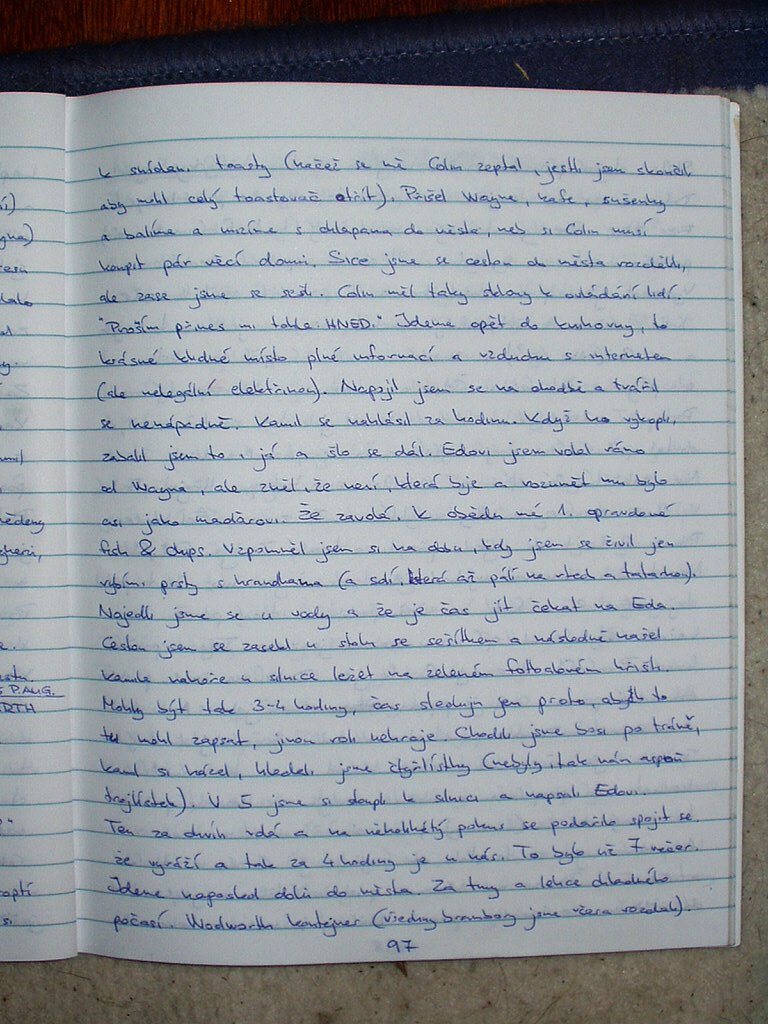 k snídani toasty (načež se mě Colin zeptal, jestli jsem skončil,
aby mohl celý toastovač otřít). Přišel Wayne, kafe, sušenky
a balíme a mizíme s chlapama do města, neb si Colin musí
koupit pár věcí domů. Sice jsme se cestou do města rozdělili,
ale zase jsme se sešli. Colin měl taky sklony k ovládání lidí.
"Prosím přines mi tohle. HNED." Jdeme opět do knihovny, to
krásné klidné místo plné informací a vzduchu s internetem
(ale nelegální elektřinou). Napojil jsem se na chodbě a tvářil
se nenápadně. Kamil se nahlásil za hodinu. Když ho vykopli,
zabalil jsem to i já a šlo se dál. Edovi jsem volal ráno
od Wayna, ale zněl, že neví, která bije a rozumět mu bylo
asi jako maďarovi. Že zavolá. K obědu mé 1. opravdové
fish & chips. Vzpomněl jsem si na dobu, kdy jsem se živil jen
rybími prsty s hranolkama (a solí, která až pálí na rtech a tatarkou).
Najedli jsme se u vody a že je čas jít čekat na Eda.
Cestou jsem se zasekl u stolu se sešítkem a následně našel
Kamila nahoře u silnice ležet na zeleném fotbalovém hřišti.
Mohly být tak 3-4 hodiny, čas sleduju jen proto, abych to
tu mohl zapsat, jinou roli nehraje. Chodili jsme bosi po trávě,
Kamil si házel, hledali jsme čtyřlístky (nebyly, tak nám aspoň
trojlístek). V 5 jsme si stoupli k silnici a napsali Edovi.
Ten za chvíli volá a na několikátý pokus se podařilo spojit se
že vyráží a tak za 4 hodiny je u nás. To bylo už 7 večer.
Jdeme naposled dolů do města. Za tmy a lehce chladného
počasí. Woolworth kontejner (všechny brambory jsme včera rozdali).
97
P.AUG.
RTH